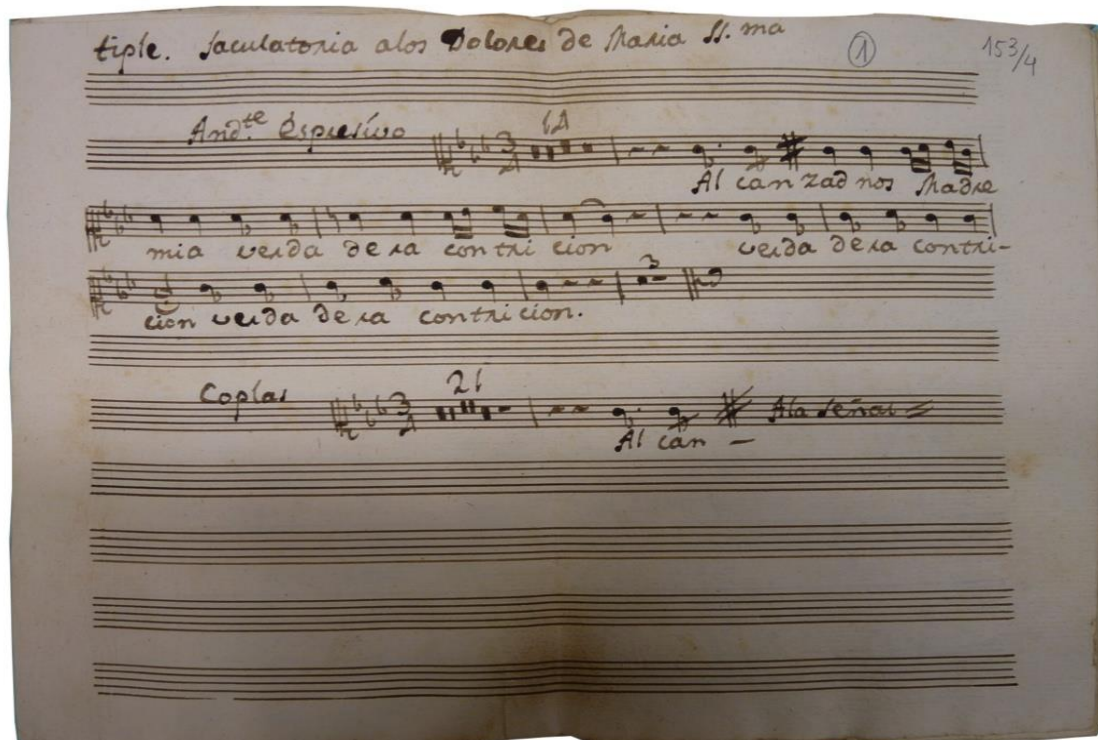 tiple. Jaculatoria a los Dolores de Maria SS.ma
1 153/4
Andte Espresivo 3 4 14
Al can zad nos Madre
mia verda de ra con tri cion verda de ra contri-
3
cion verda de ra contri cion.
Coplas 3 4 21 Ala señal
Al can -